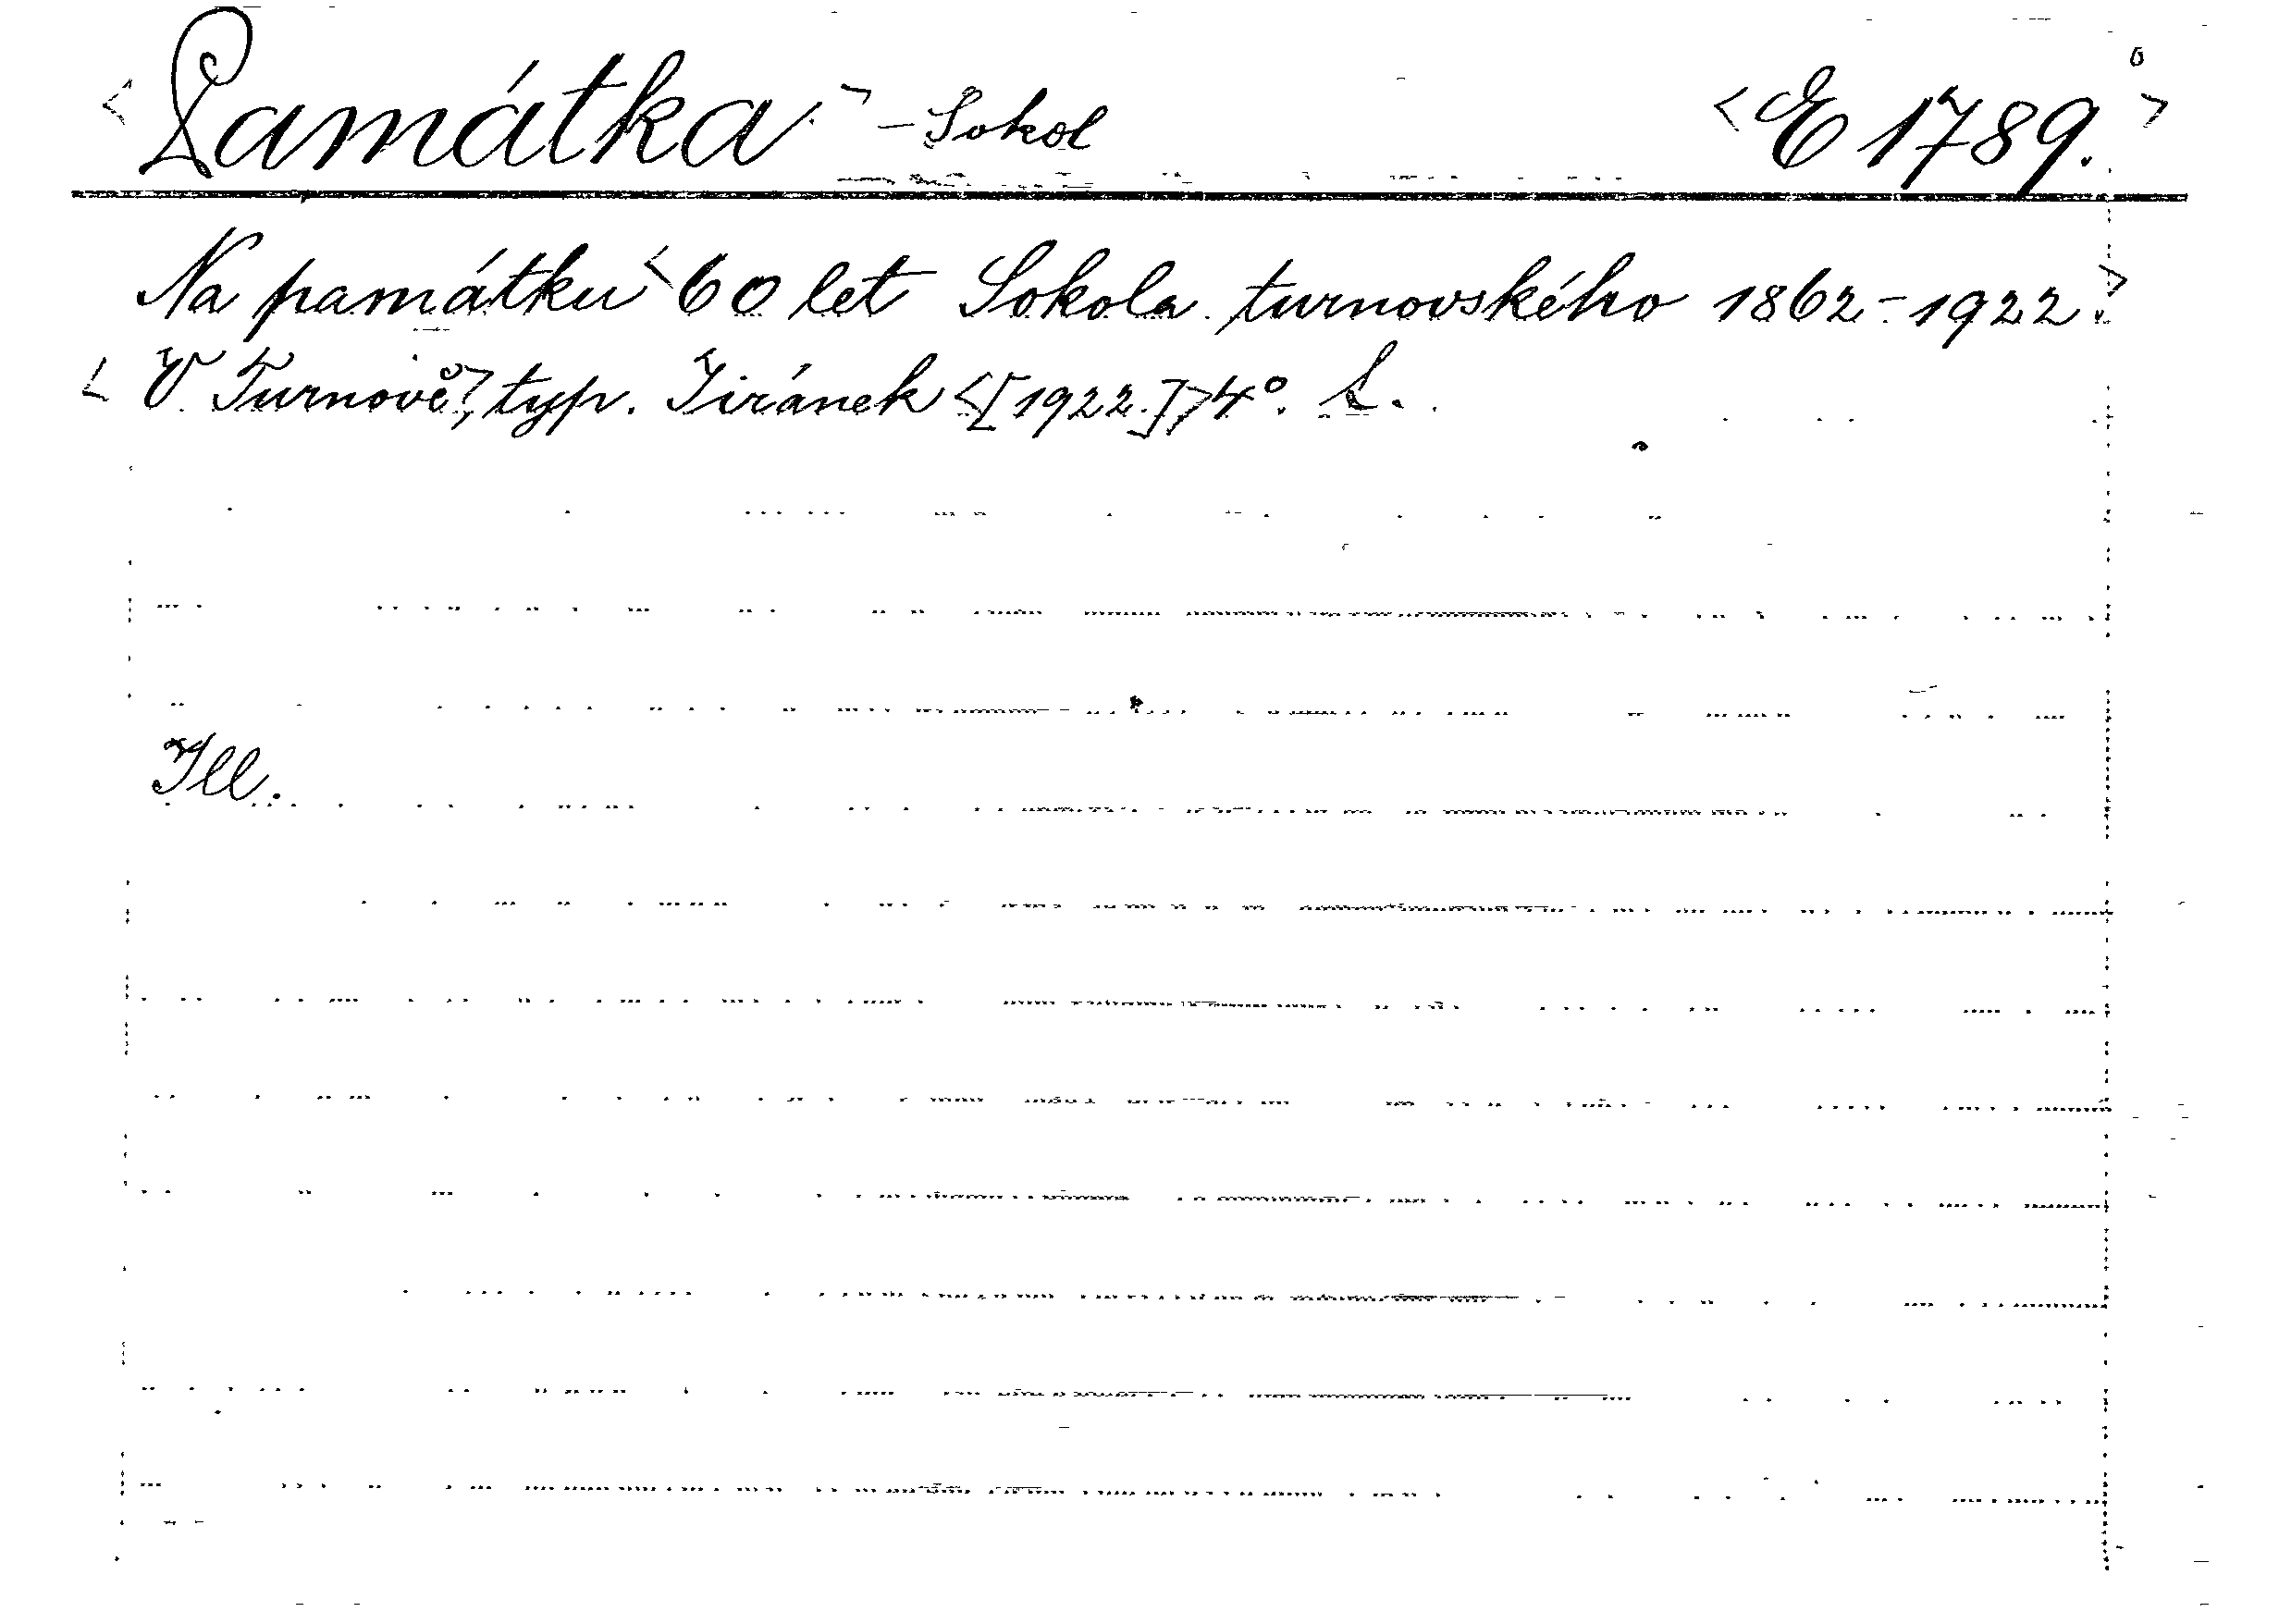 <Památka.> - Sokol <E 1789.>
Na památku <60 let Sokola turnovského 1862-1922.>
<V Turnově>, typ. Jiránek <[1922.]> 4°.
Ill.